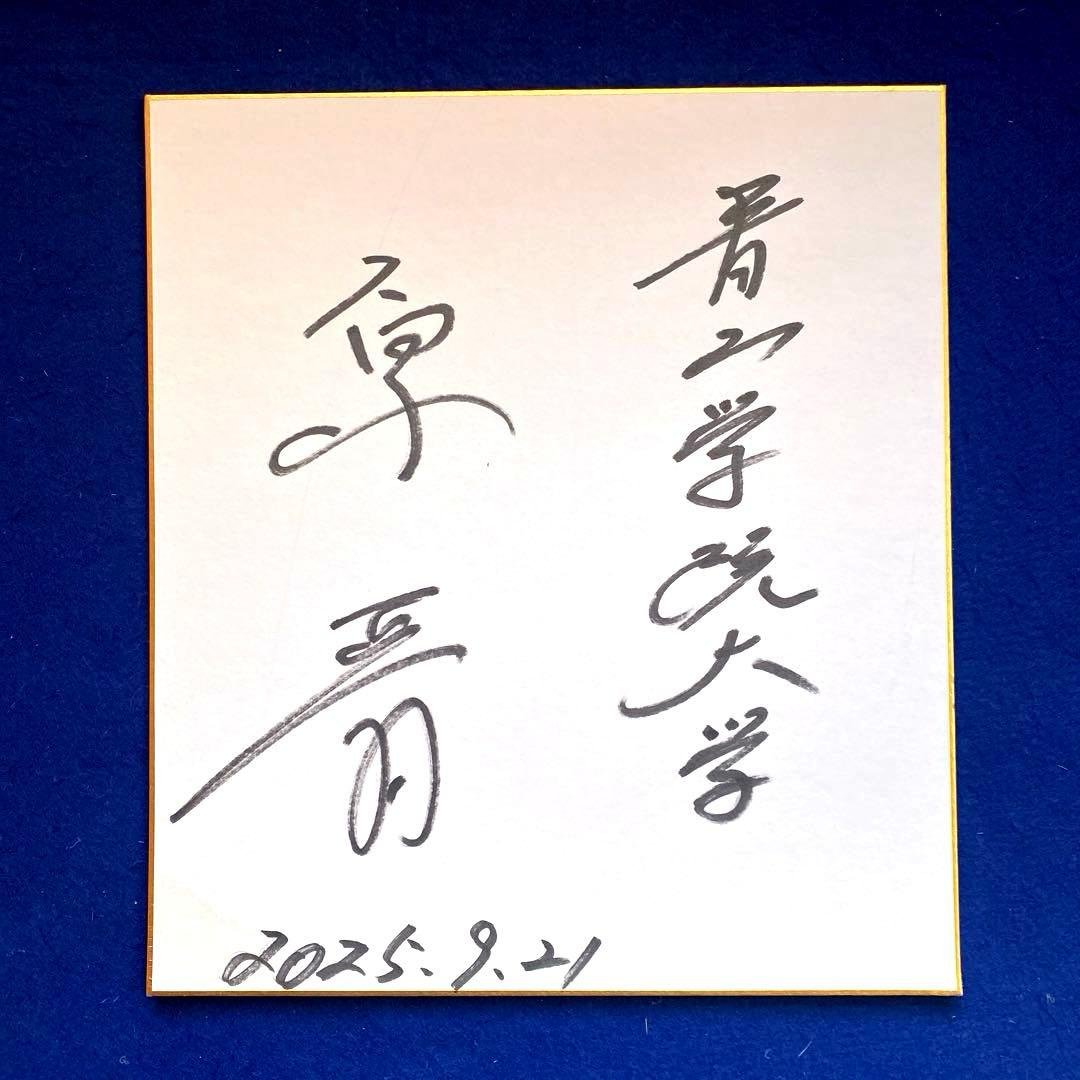 青山学院大学
原晋
2025.9.21